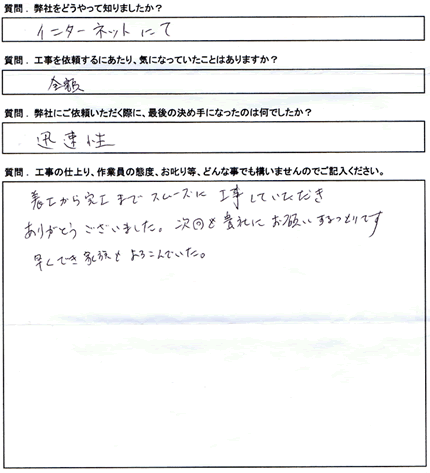 質問．弊社をどうやって知りましたか？
インターネットにて
質問．工事を依頼するにあたり、気になっていたことはありますか？
金額
質問．弊社にご依頼いただく際に、最後の決め手になったのは何でしたか？
迅速性
質問．工事の仕上り、作業員の態度、お叱り等、どんな事でも構いませんのでご記入ください。
着工から完工までスムーズに工事していただき
ありがとうございました。次回も貴社にお願いするつもりです
早くでき家族もよろこんでいた。